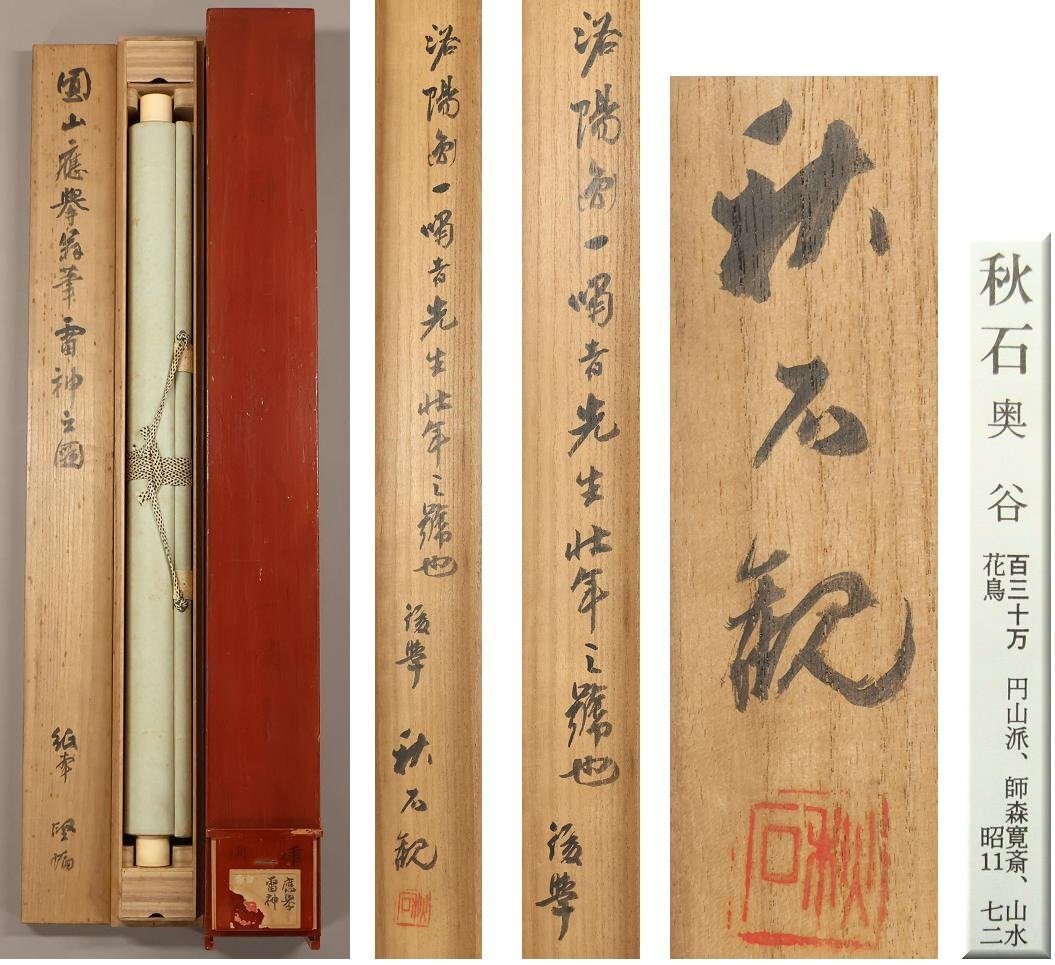 圓山應擧翁筆雷神之圖
紙本 竪幅
應擧
雷神
洛陽男一嘯者先生壯年之號也 後學 秋石觀
秋石
洛陽男一嘯者先生壯年之號也 後學
秋石觀
秋石
秋石 奥谷
百三十万 円山派、師森寛斎、山水
花鳥 昭11 七二